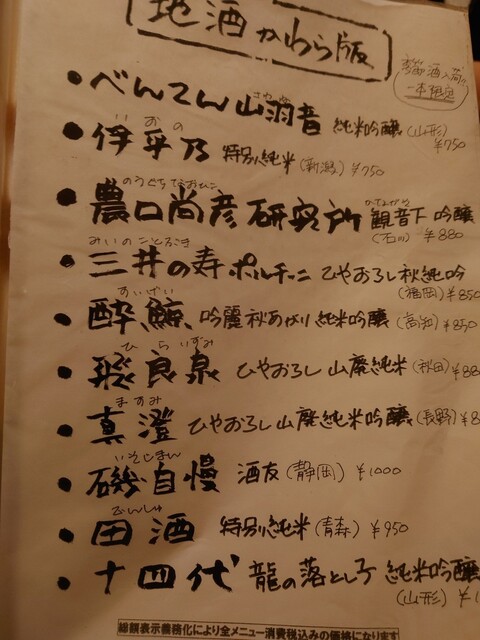 地酒かわら版
季節酒入荷!!
一本限定
さやね
べんてん山羽音 純米吟醸(山形)
¥750
いおの
伊乎乃 特別純米(新潟)¥750
のうぐちなおひこ かながそ
農口尚彦研究所 観音下 吟醸
(石川) ¥880
みいのことぶき
三井の寿 ポルチーニ ひやおろし秋純吟
(福岡) ¥850
すいげい
酔鯨 吟麗秋あがり 純米吟醸(高知)¥850
ひらいずみ
飛良泉 ひやおろし 山廃純米(秋田)¥88
ますみ
真澄 ひやおろし山廃純米吟醸(長野)¥8
いそじまん
磯自慢 酒友(静岡)¥1000
でんしゅ
田酒 特別純米(青森)¥950
十四代 龍の落とし子 純米吟醸
(山形) ¥1
総額表示義務化により全メニュー消費税込みの価格になります